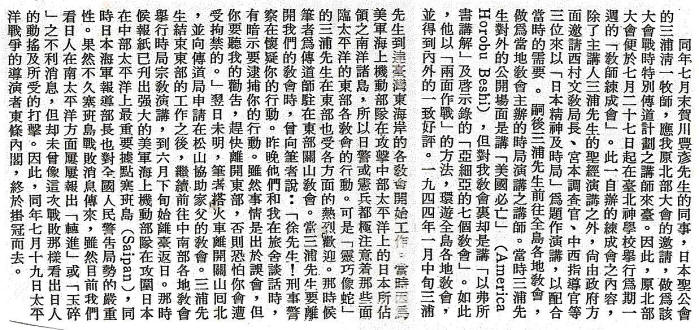 同年七月末賀川豐彥先生的同事，日本聖公會
的三浦清一牧師，應我原北部大會的邀請，做爲該
大會戰時特別傳道計劃之講師來臺。因此，原北部
大會便於七月二十七日起在臺北神學校舉行爲期一
週的「教師練成會」。此一自辦的練成會之內容，
除了主講人三浦先生的聖經演講之外，尙由政府方
面邀請西村文教局長、宮本調查官、中西指導官等
三位來以「日本精神及時局」爲題作演講，以配合
當時的需要。嗣後三浦先生前往全島各地教會，
做爲當地教會主辦的時局演講之講師。當時三浦先
生對外的公開場面是講「美國必亡」(America
Horobu Beshi)，但對我教會裏却是講「以弗所
書講解」及啓示錄的「亞細亞的七個教會」。如此
，他以「兩面作戰」的方法，環遊全島各地教會，
並得到內外的一致好評。一九四四年一月中旬三浦
先生到達臺灣東海岸的各教會開始工作。當時因爲
美軍海上機動部隊在攻擊中部太平洋上的日本所佔
領之南洋諸島，所以日警或憲兵都極注意着那些面
臨太平洋的東部各教會的行動。可是「靈巧像蛇」
的三浦先生在東部也受各方面的熱烈歡迎。那時候
筆者爲傳道師駐在東部關山教會。當三浦先生要離
開我們的教會時，曾向筆者說：「徐先生！刑事警
察在懷疑你的行動。昨晚他們和我在旅舍談話時，
有暗示要逮捕你的行動。雖然事情是出於誤會，但
你要聽我的勸告，趕快離開東部，否則恐怕你會遭
受拘禁的。」翌日未明，筆者搭火車離開關山回北
，並向傳道局申請在松山協助家父的教會。三浦先
生結束東部的工作之後，繼續前往中南部各地教會
舉行時局宗教演講，到六月下旬始離臺返日。那時
候報紙已刋出强大的美軍海上機動部隊在攻圍日本
在中部太平洋上最重要據點塞班島(Saipan)，同
時日本海軍報導部長也對全國人民警告局勢的嚴重
性。果然不久塞班島戰敗消息傳來，雖然目前我們
看日人在南太平洋方面屢屢報出「轉進」或「玉碎
」之不利消息，但却未曾像這次戰敗那樣看出日人
的動搖及所受的打擊。因此，同年七月十九日太平
洋戰爭的導演者東條內閣，終於掛冠而去。